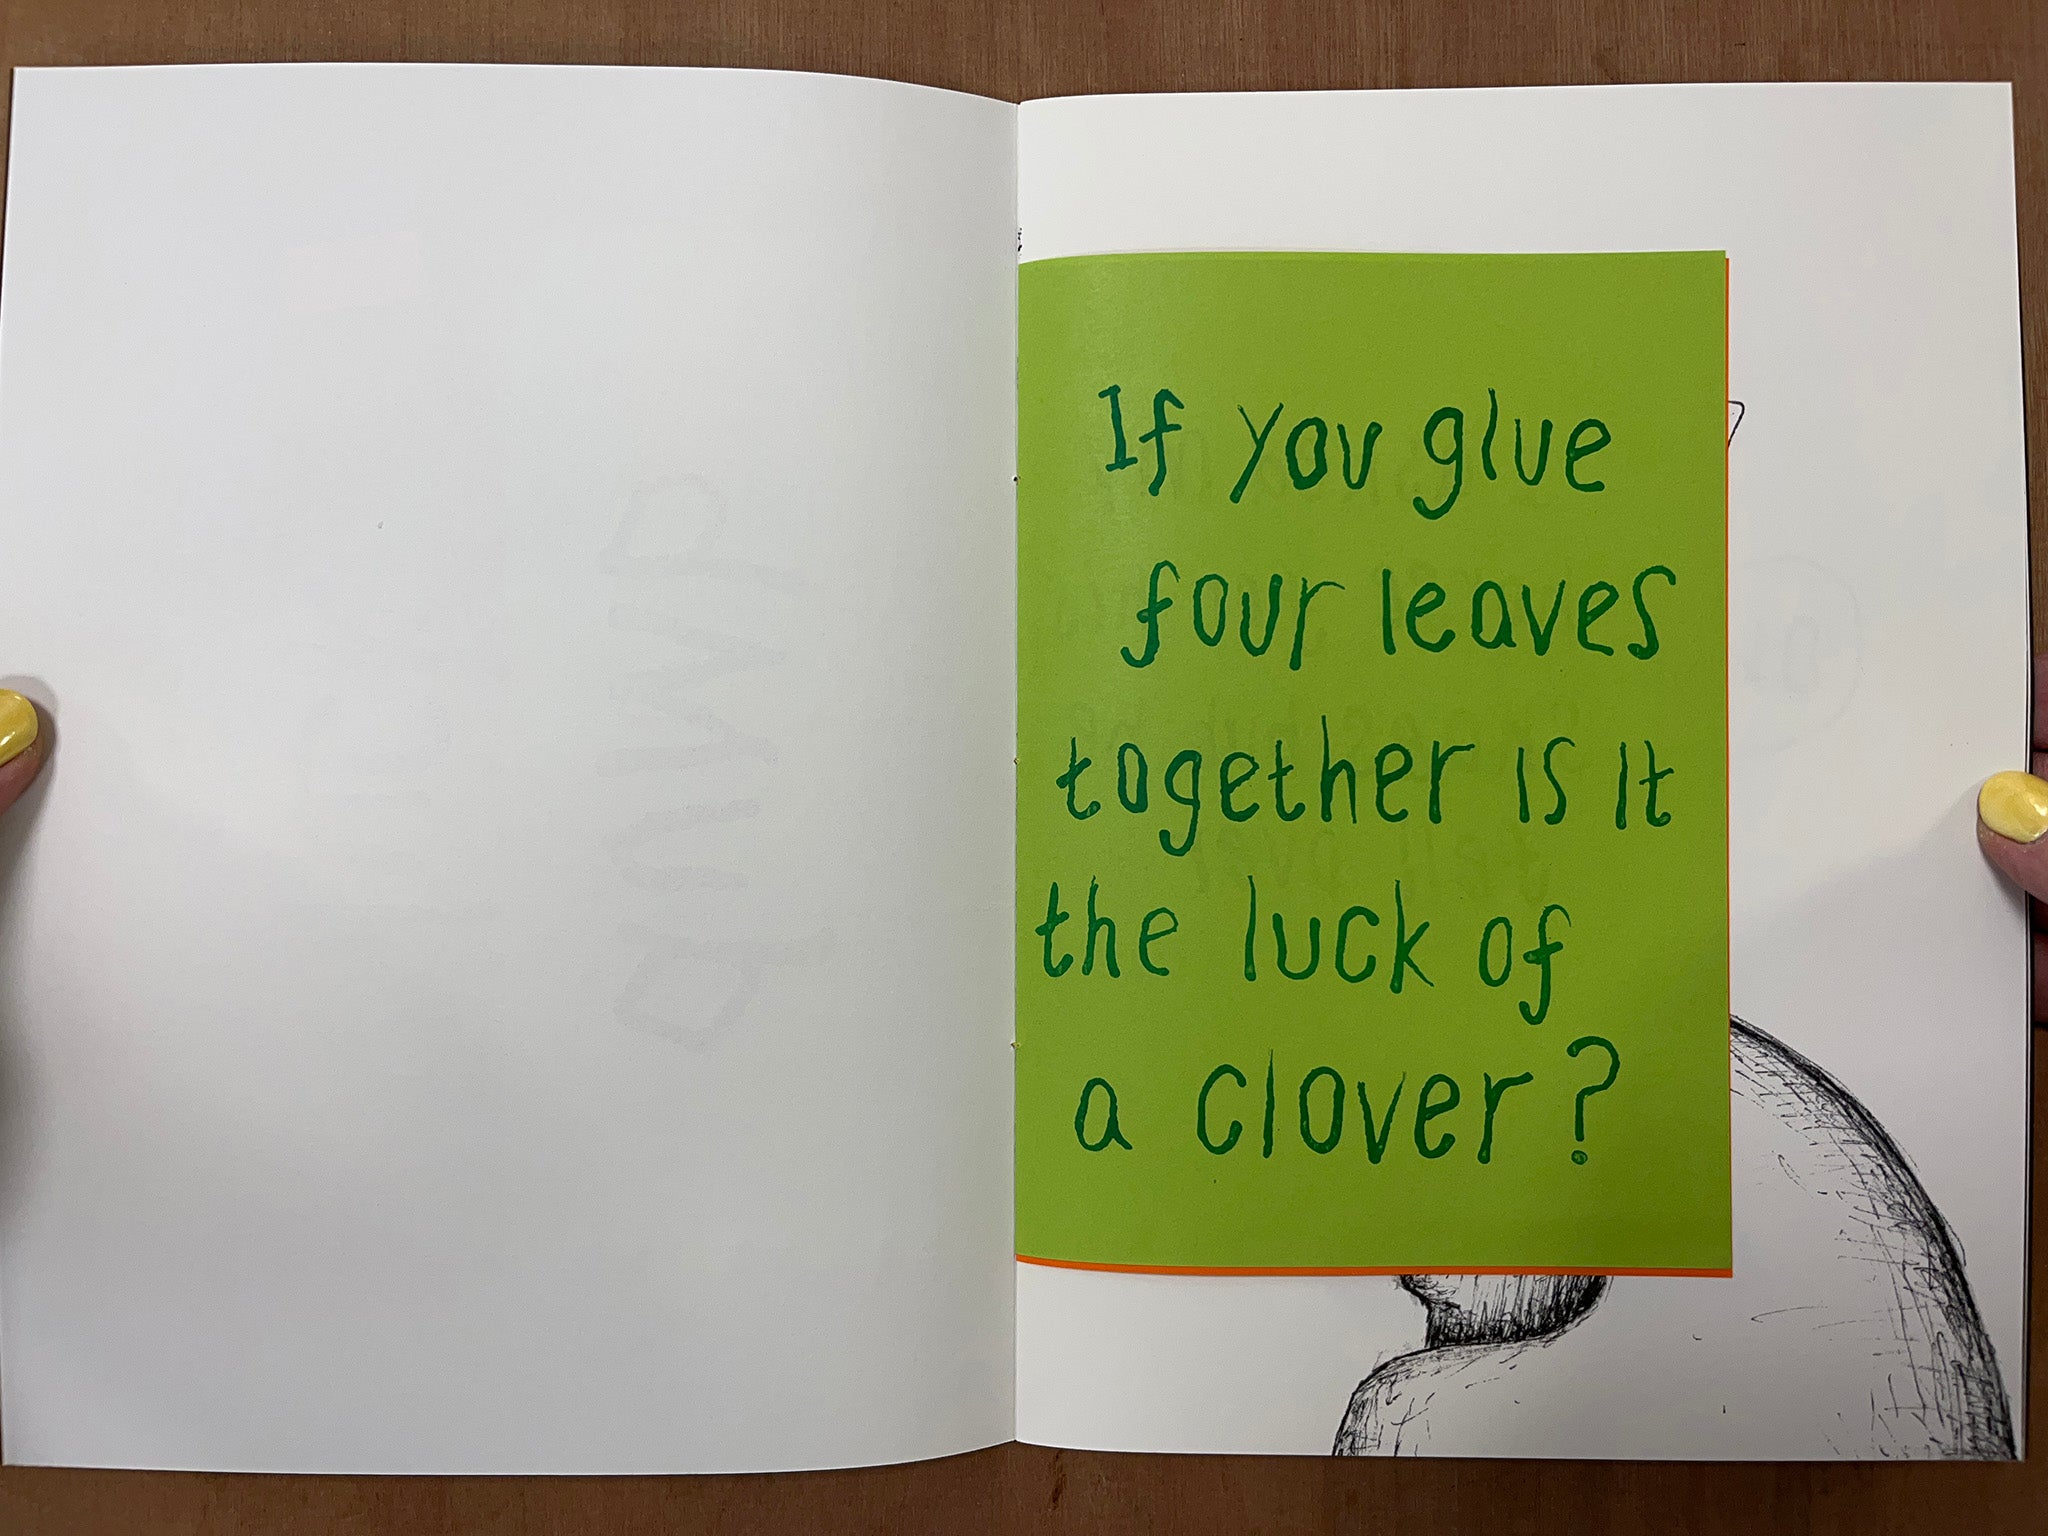 If you glue
four leaves
together is it
the luck of
a clover?